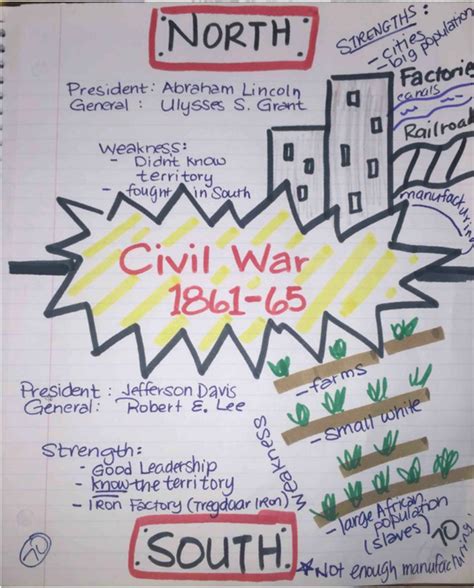 NORTH
STRENGTHS:
- cities
- big population
Factories
canals
Railroad
manufacturing
President: Abraham Lincoln
General : Ulysses S. Grant
Weakness:
- Didnt know
territory
- fought in South
Civil War
1861-65
President : Jefferson Davis
General: Robert E. Lee
Strength:
- Good Leadership
- Know the territory
- IRon Factory (Tregdaar IRon)
Weakness
- farms
- small white
- large African
population
(slaves)
70
70
SOUTH
★Not enough manufacturing!